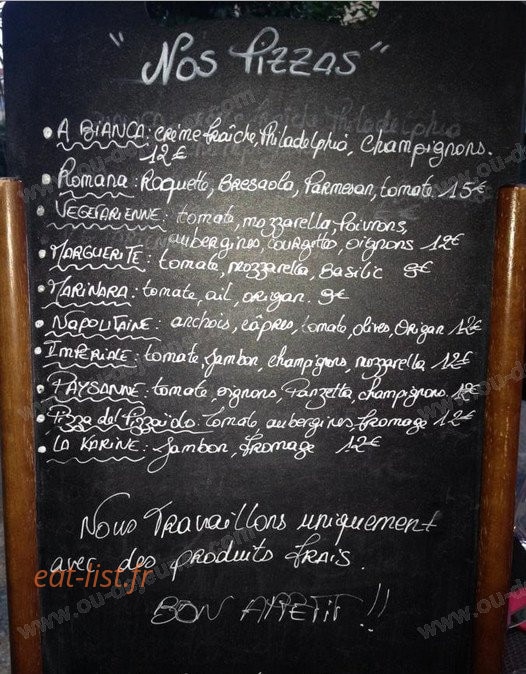 " Nos Pizzas "
• A BIANCA : crème fraîche, Philadelphia, champignons.
12€
• Romana : Roquette, Bresaola, Parmesan, tomate 15€
• VEGETARIENNE : tomate, mozzarella, Poivrons,
aubergines, courgettes, oignons 12€
• MARGUERITE : tomate, mozzarella, Basilic 9€
• MARINARA : tomate, ail, origan. 9€
• NAPOLITAINE : anchois, câpres, tomate, olives, Origan 12€
• IMPÉRIALE : tomate, Jambon, champignons, mozzarella 12€
• PAYSANNE : tomate, oignons, Panzetta, champignons. 12€
• Pizza del Pizzaiolo : tomate, aubergines, fromage 12€
• LA KARINE : Jambon, fromage 12€
Nous Travaillons uniquement
avec des produits frais.
eat-list.fr
BON APPETIT !!